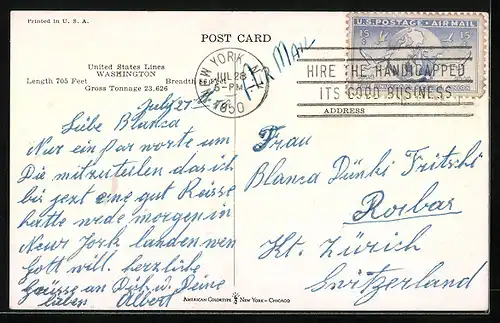 Printed in U. S. A.
POST CARD
United States Lines
WASHINGTON
Length 705 Feet Breadth
Gross Tonnage 23,626
AIR MAIL
U.S. POSTAGE AIR MAIL
15¢ 15¢
NEW YORK, N.Y.
JUL 28
5-PM
1950
HIRE THE HANDICAPPED
ITS GOOD BUSINESS
ADDRESS
July 27
Liebe Blanca
Nur ein par worte um
Die mitzuteilen das ich
bis jezt eine gut Reisse
hatte wede morgen in
Neuw York landen wen
Gott will. herzliche
Grüsse an Dich u. Deine
lieben Albert
Frau
Blanca Dünki Fritschi
Rorbas
Kt. Zürich
Switzerland
AMERICAN COLORTYPE NEW YORK-CHICAGO